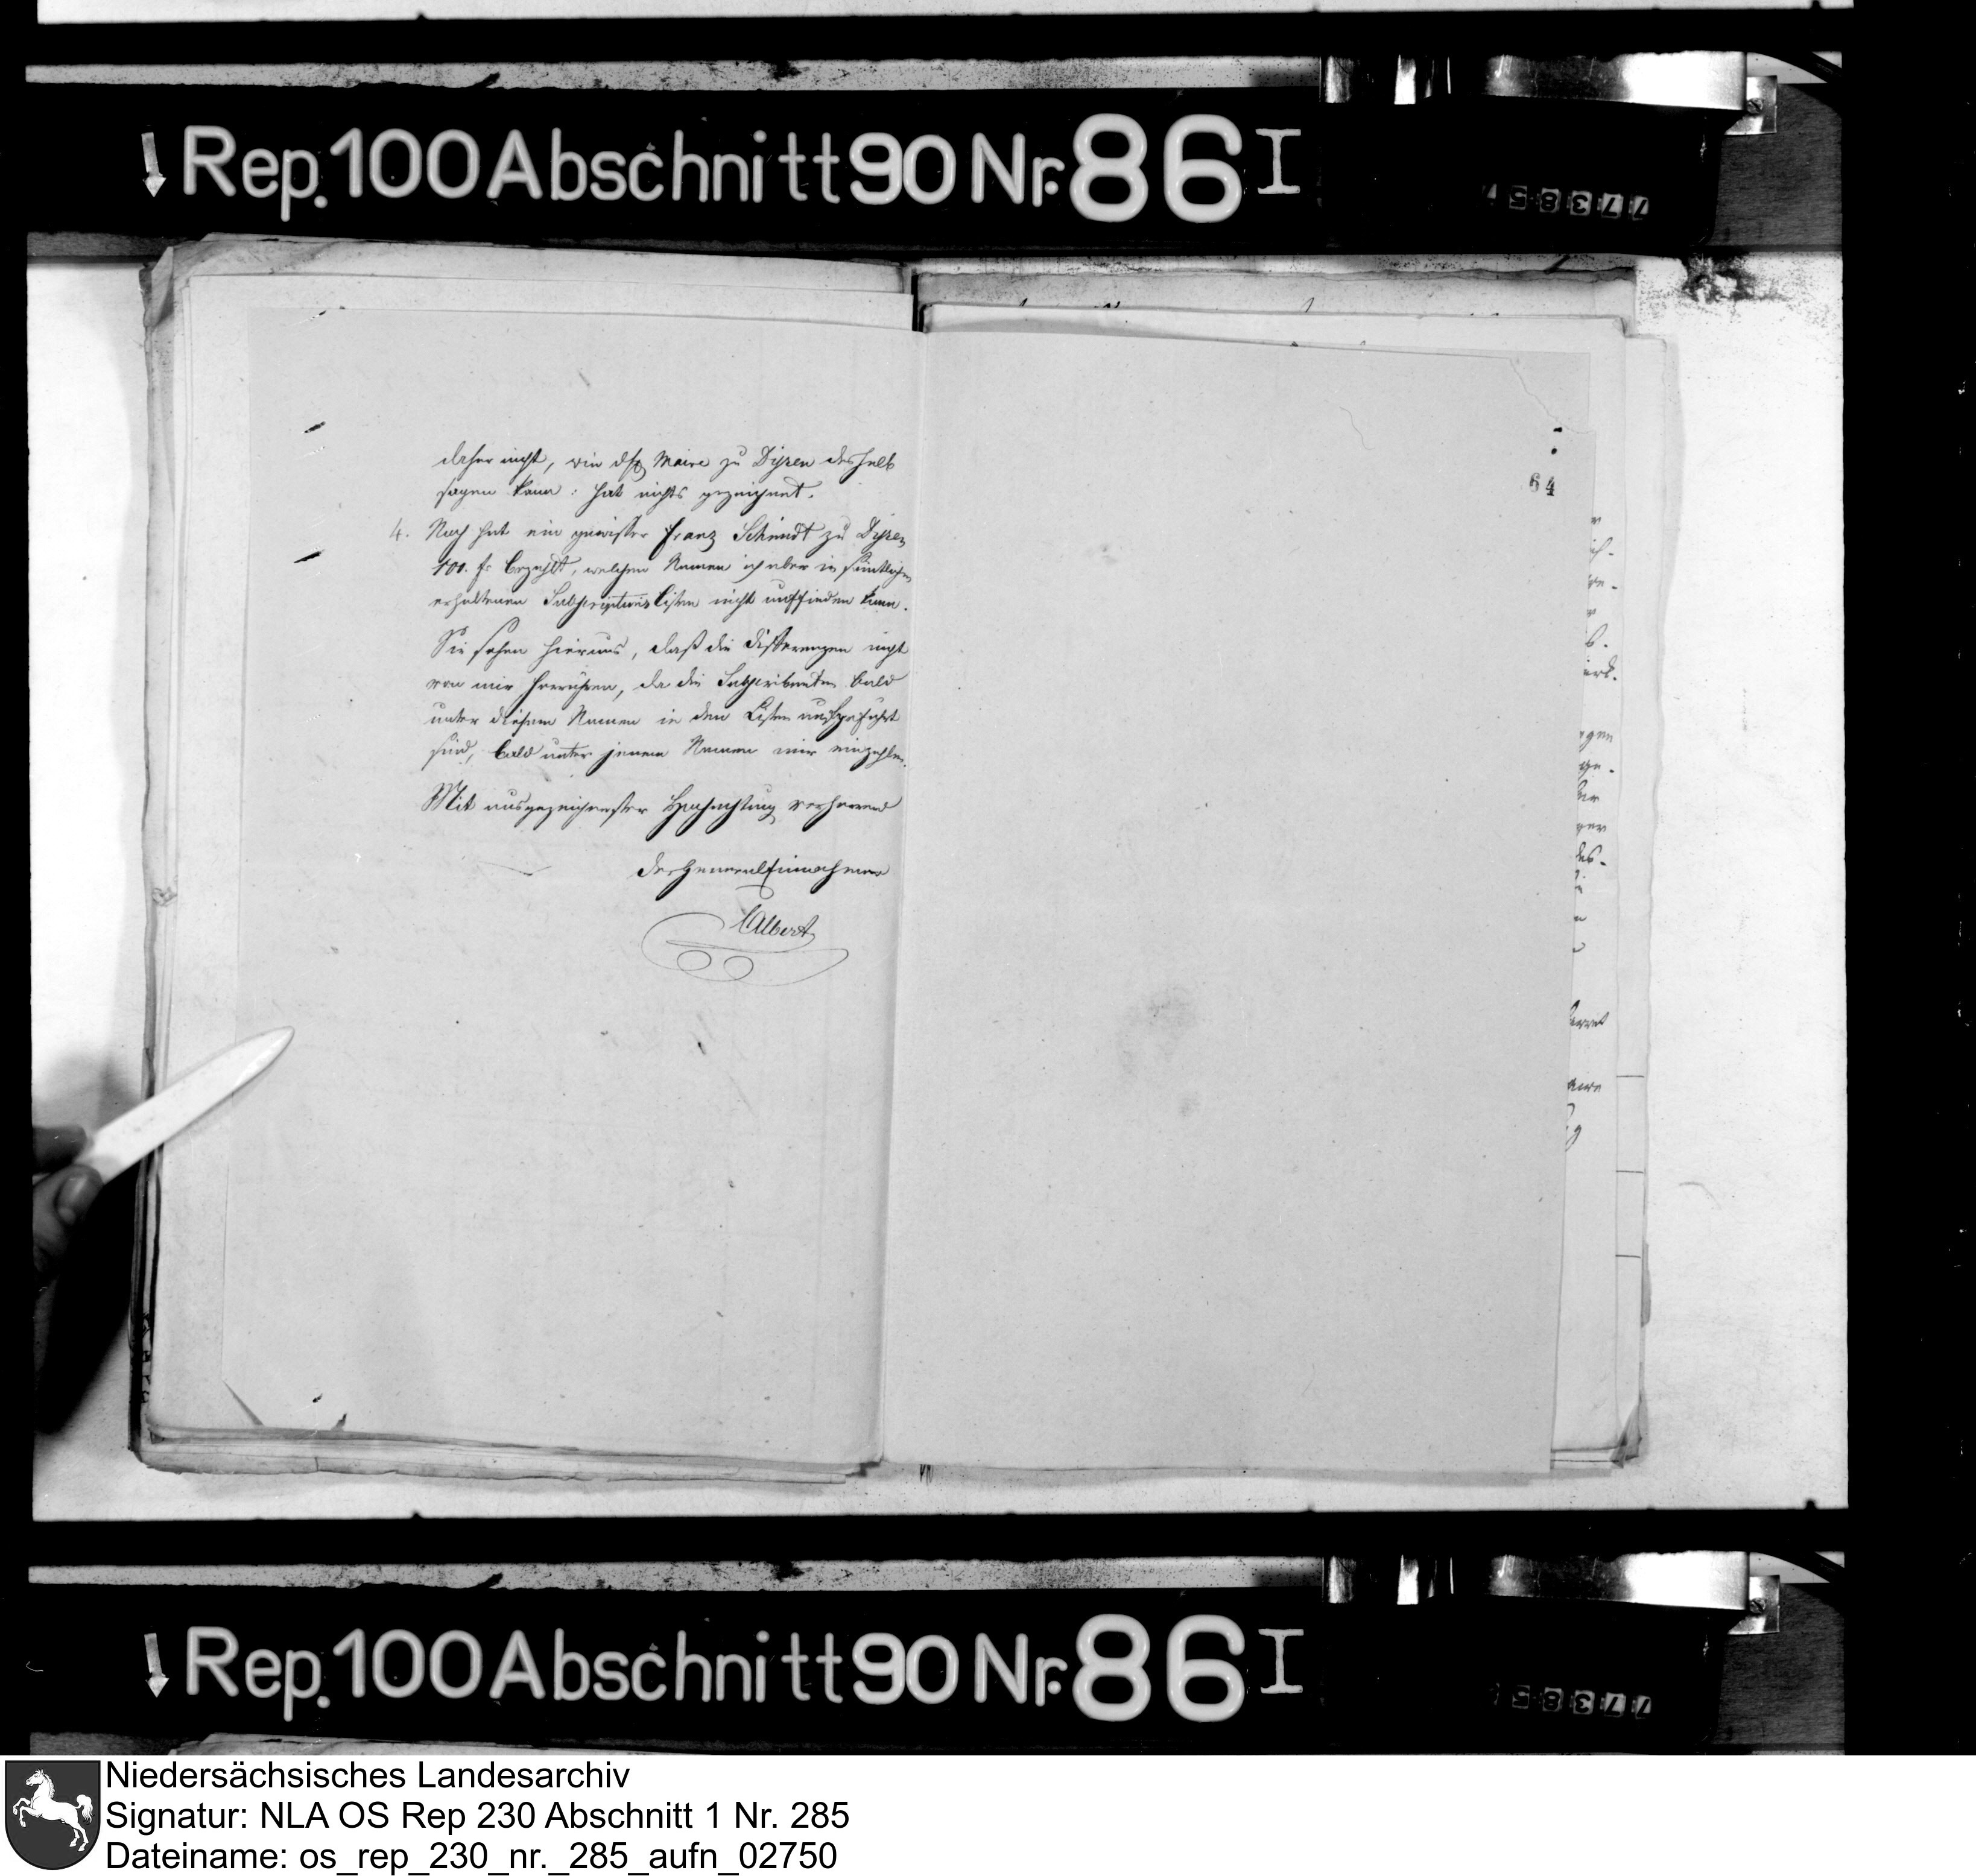 Rep. 100 Abschnitt 90 Nr. 86 I
77385
daher nicht, wie Maire zu Dissen deshalb
sagen kann: hat nichts gezeichnet.
64
4. Noch hat ein gewisser Franz Schmidt zu Dissen
100. fr. bezahlt, welchen Namen ich aber in sämtlichen
erhaltenen Subscriptions Listen nicht auffinden kann.
Sie sehen hieraus, daß die Differenzen nicht
von mir herrühren, da die Subscribenten bald
unter diesem Namen in den Listen aufgeführt
sind, bald unter jenem Namen mir einzahlen.
Mit ausgezeichneter Hochachtung verharrend
der General Einnehmer
Albert
Rep. 100 Abschnitt 90 Nr. 86 I
77385
Niedersächsisches Landesarchiv
Signatur: NLA OS Rep 230 Abschnitt 1 Nr. 285
Dateiname: os_rep_230_nr._285_aufn_02750